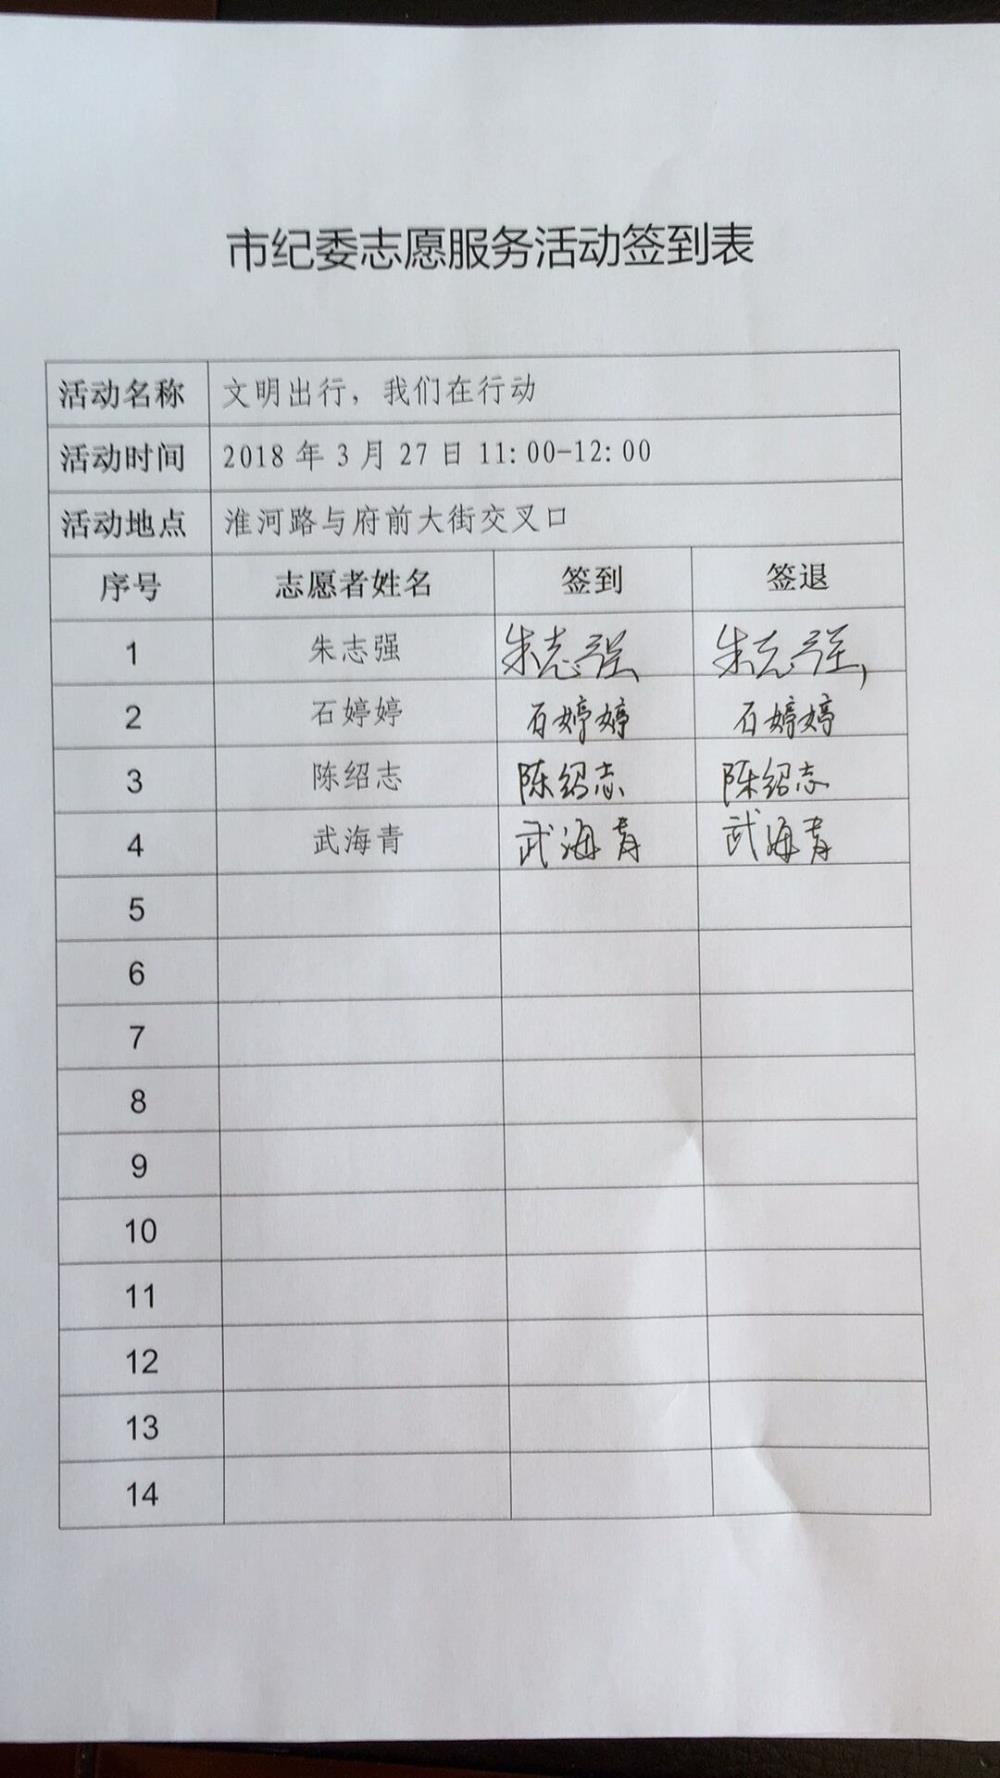 市纪委志愿服务活动签到表
活动名称 文明出行，我们在行动
活动时间 2018 年 3 月 27 日 11:00-12:00
活动地点 淮河路与府前大街交叉口
序号 志愿者姓名 签到 签退
1 朱志强 朱志强 朱志强
2 石婷婷 石婷婷 石婷婷
3 陈绍志 陈绍志 陈绍志
4 武海青 武海青 武海青
5
6
7
8
9
10
11
12
13
14